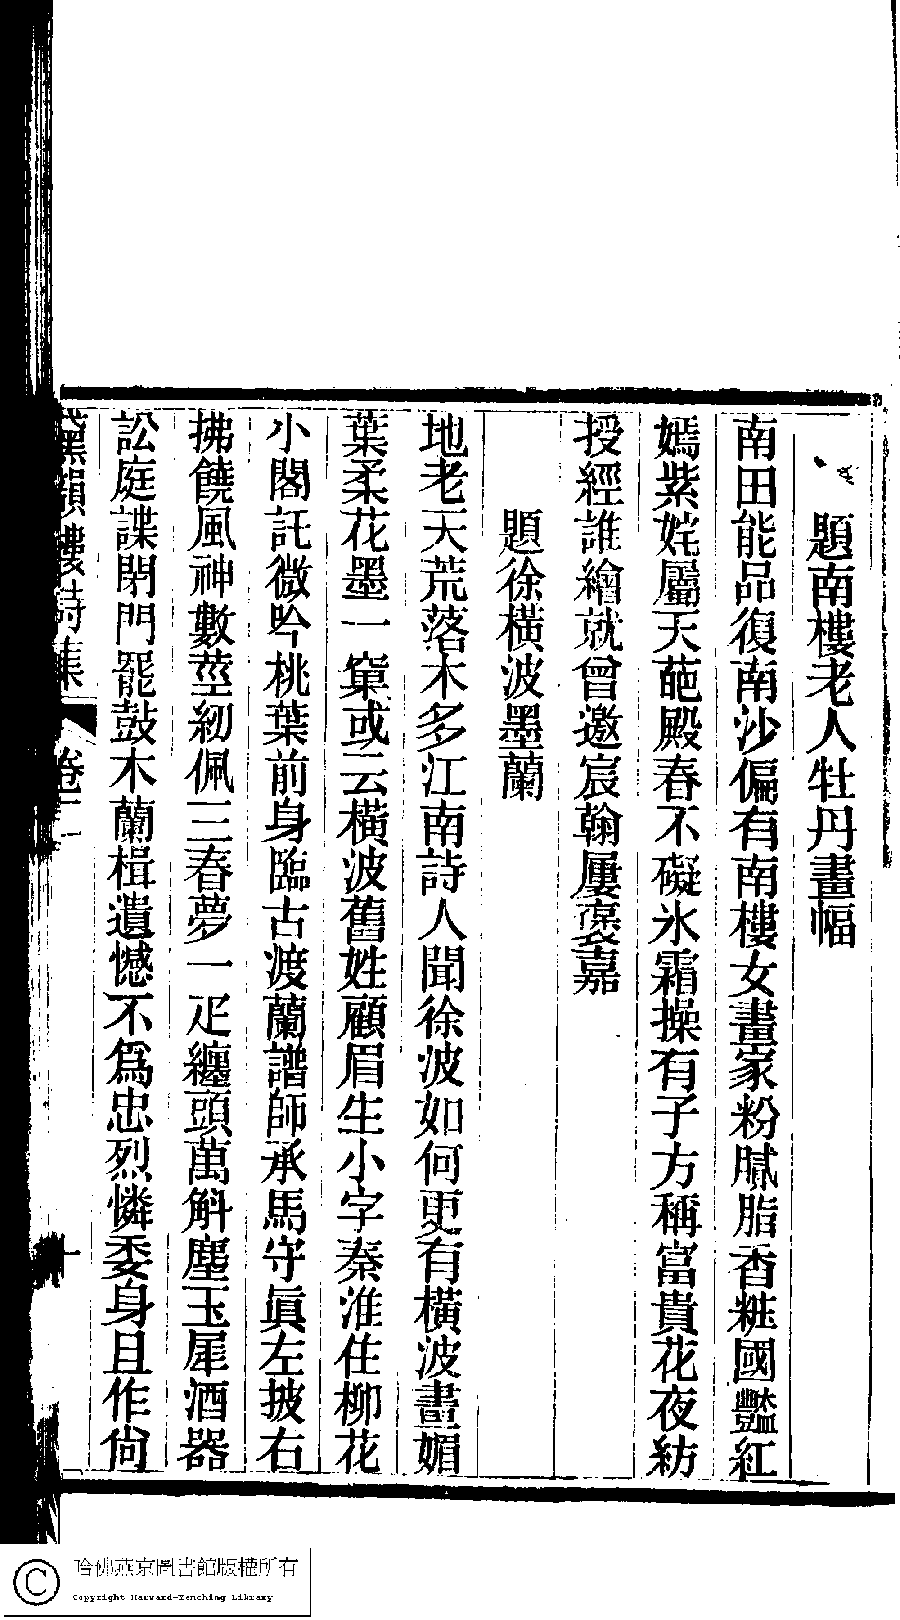 題南樓老人牡丹畫幅
南田能品復南沙偏有南樓女畫家粉膩脂香粧國豔紅
嫣紫姹屬天葩殿春不礙氷霜操有子方稱富貴花夜紡
授經誰繪就曾邀宸翰屢褒嘉
題徐橫波墨蘭
地老天荒落木多江南詩人聞徐波如何更有橫波畫媚
葉柔花墨一窠或云橫波舊姓顧眉生小字秦淮住柳花
小閣託微吟桃葉前身臨古渡蘭譜師承馬守眞左披右
拂饒風神數莖紉佩三春夢一疋纏頭萬斛塵玉犀酒器
訟庭諜閉門罷鼓木蘭楫遺憾不爲忠烈憐委身且作尙
黛韻樓詩集
卷二
十
哈佛燕京圖書館版權所有
Copyright Harvard-Yenching Library